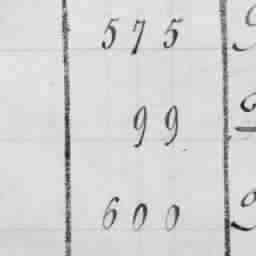 575
99
600